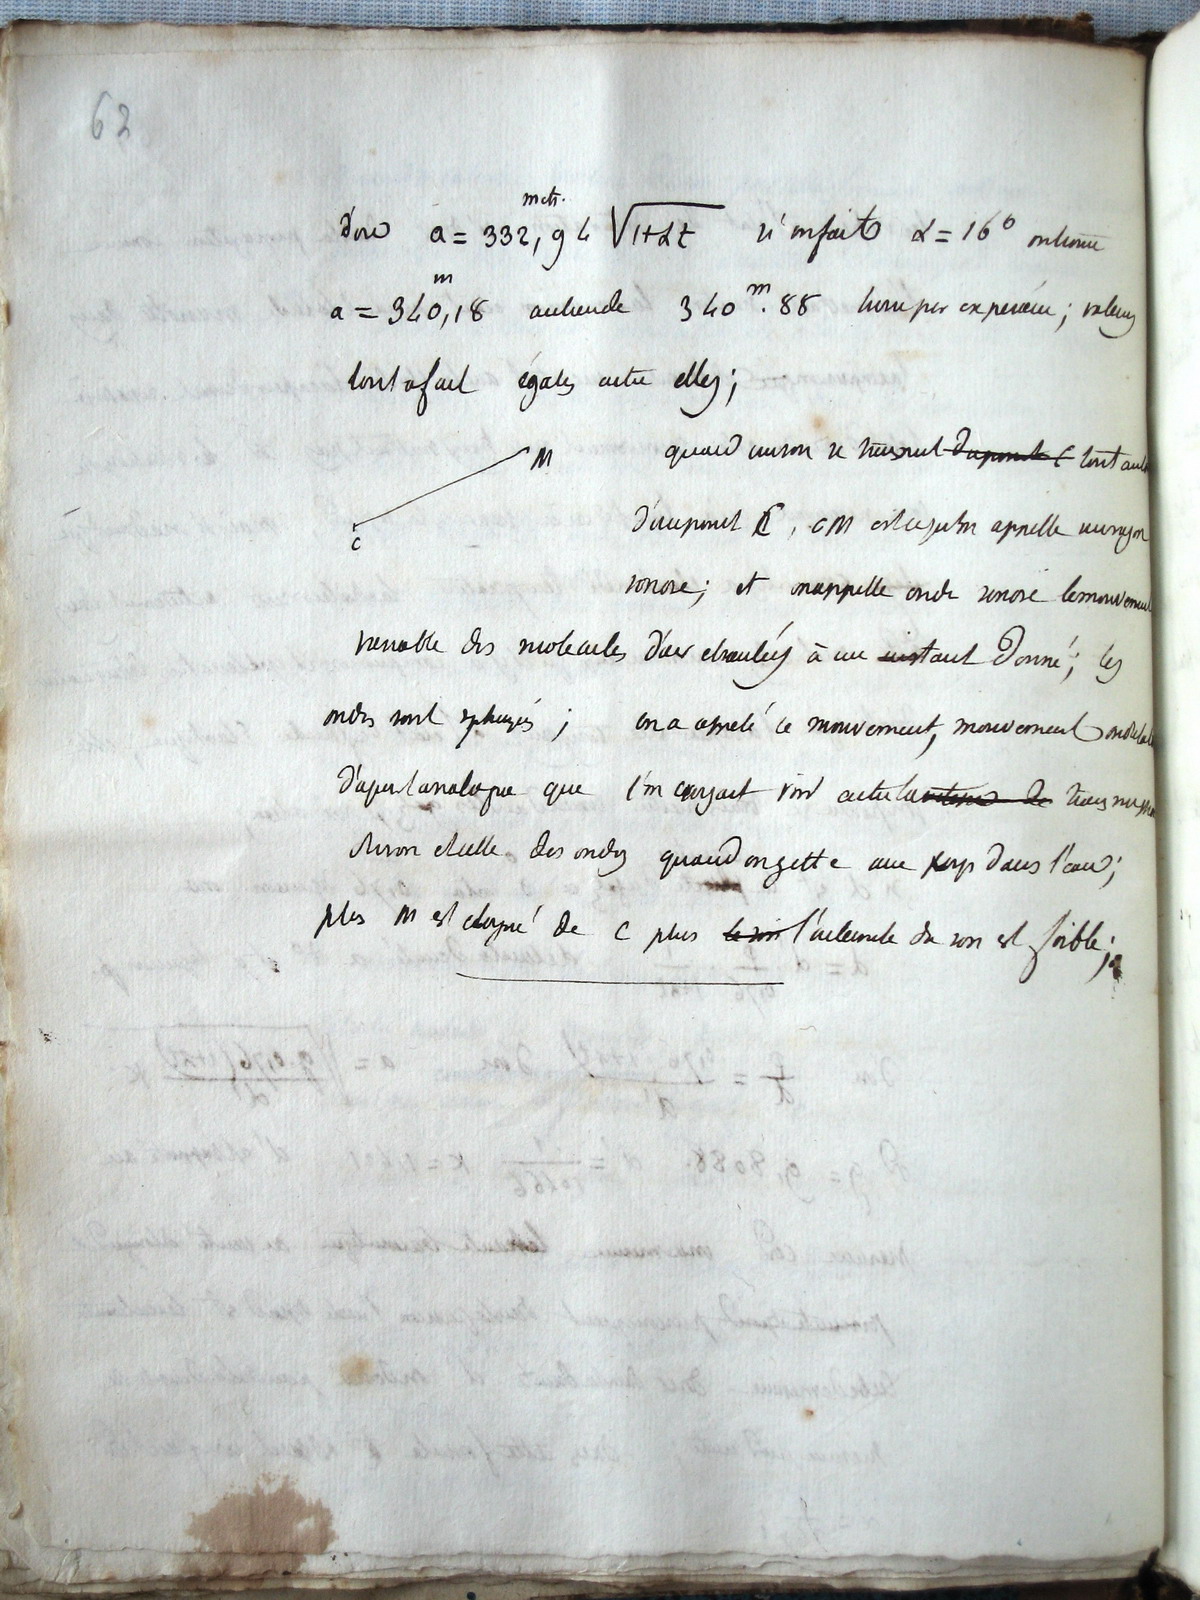 62
donc a = 332,94 mèt. √1+αt si on fait α = 16° on trouve
a = 340,18 m au lieu de 340m.88 trouvé par expérience; valeurs
tout a fait égales entre elles;
M quand un son se transmet du point C tout autour
C d'un point C, CM est ce qu'on appelle un rayon
sonore; et on appelle onde sonore le mouvement
variable des molecules d'air ebranlées à un instant donné; les
ondes sont spheriques; on a appelé ce mouvement, mouvement
d'après l'analogie que l'on croyait voir entre la de
du son et celle des ondes quand on jette un corps dans l'eau;
plus M est eloigné de C plus le son l'intensité du son est foible;